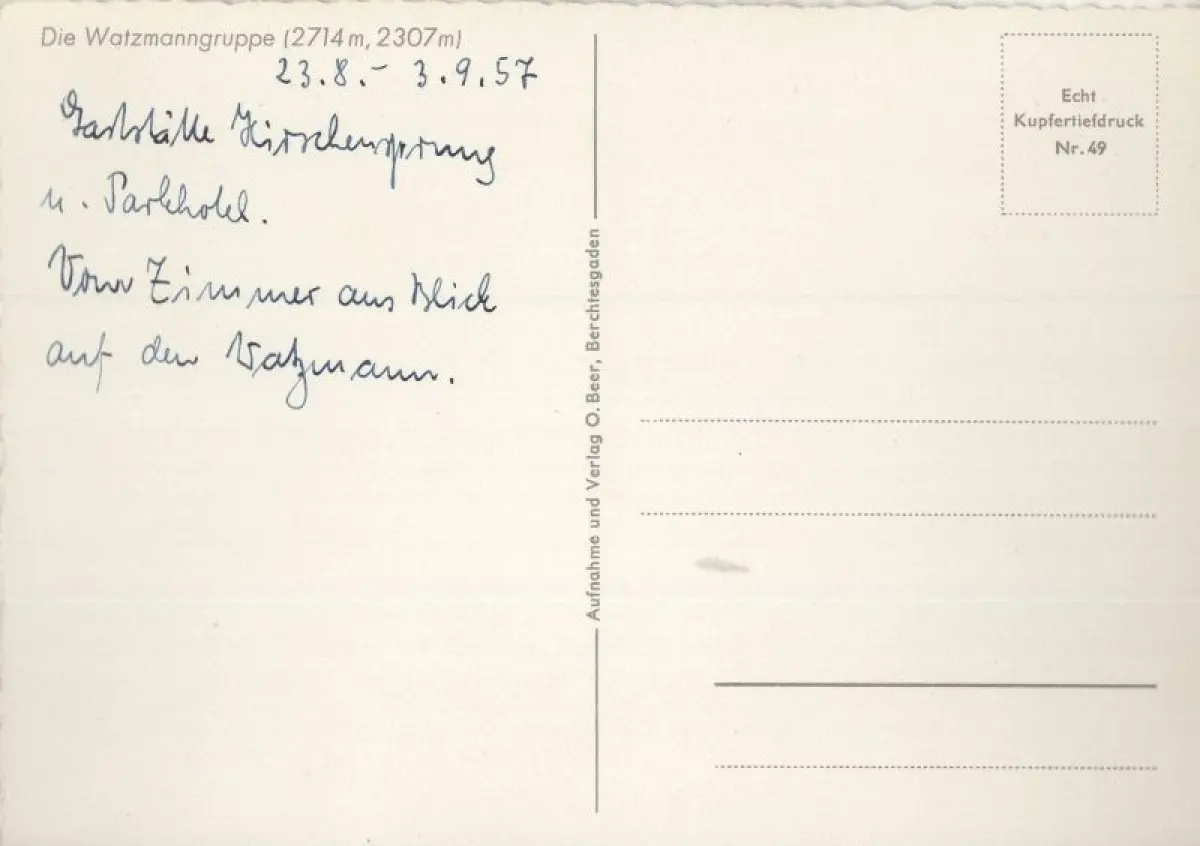 Die Watzmanngruppe (2714 m, 2307 m)
23.8.- 3.9.57
Gaststätte Hirschensprung
u. Parkhotel.
Vom Zimmer aus Blick
auf den Watzmann.
Aufnahme und Verlag O. Beer, Berchtesgaden
Echt
Kupfertiefdruck
Nr. 49